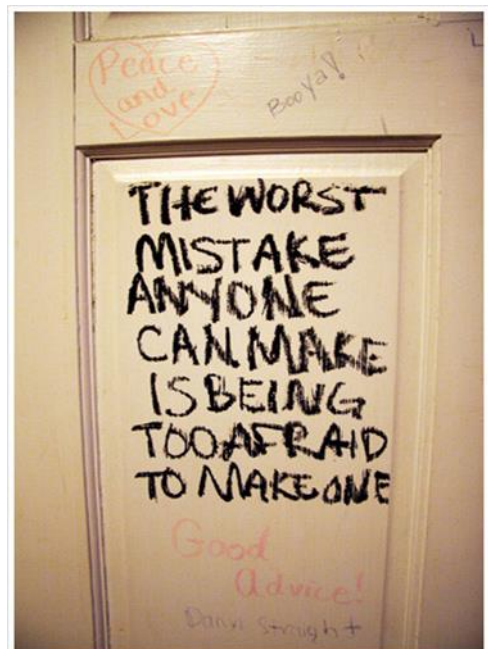 Peace
and
Love
Booya!
THE WORST
MISTAKE
ANYONE
CAN MAKE
IS BEING
TOO AFRAID
TO MAKE ONE
Good
Advice!
Damn Straight